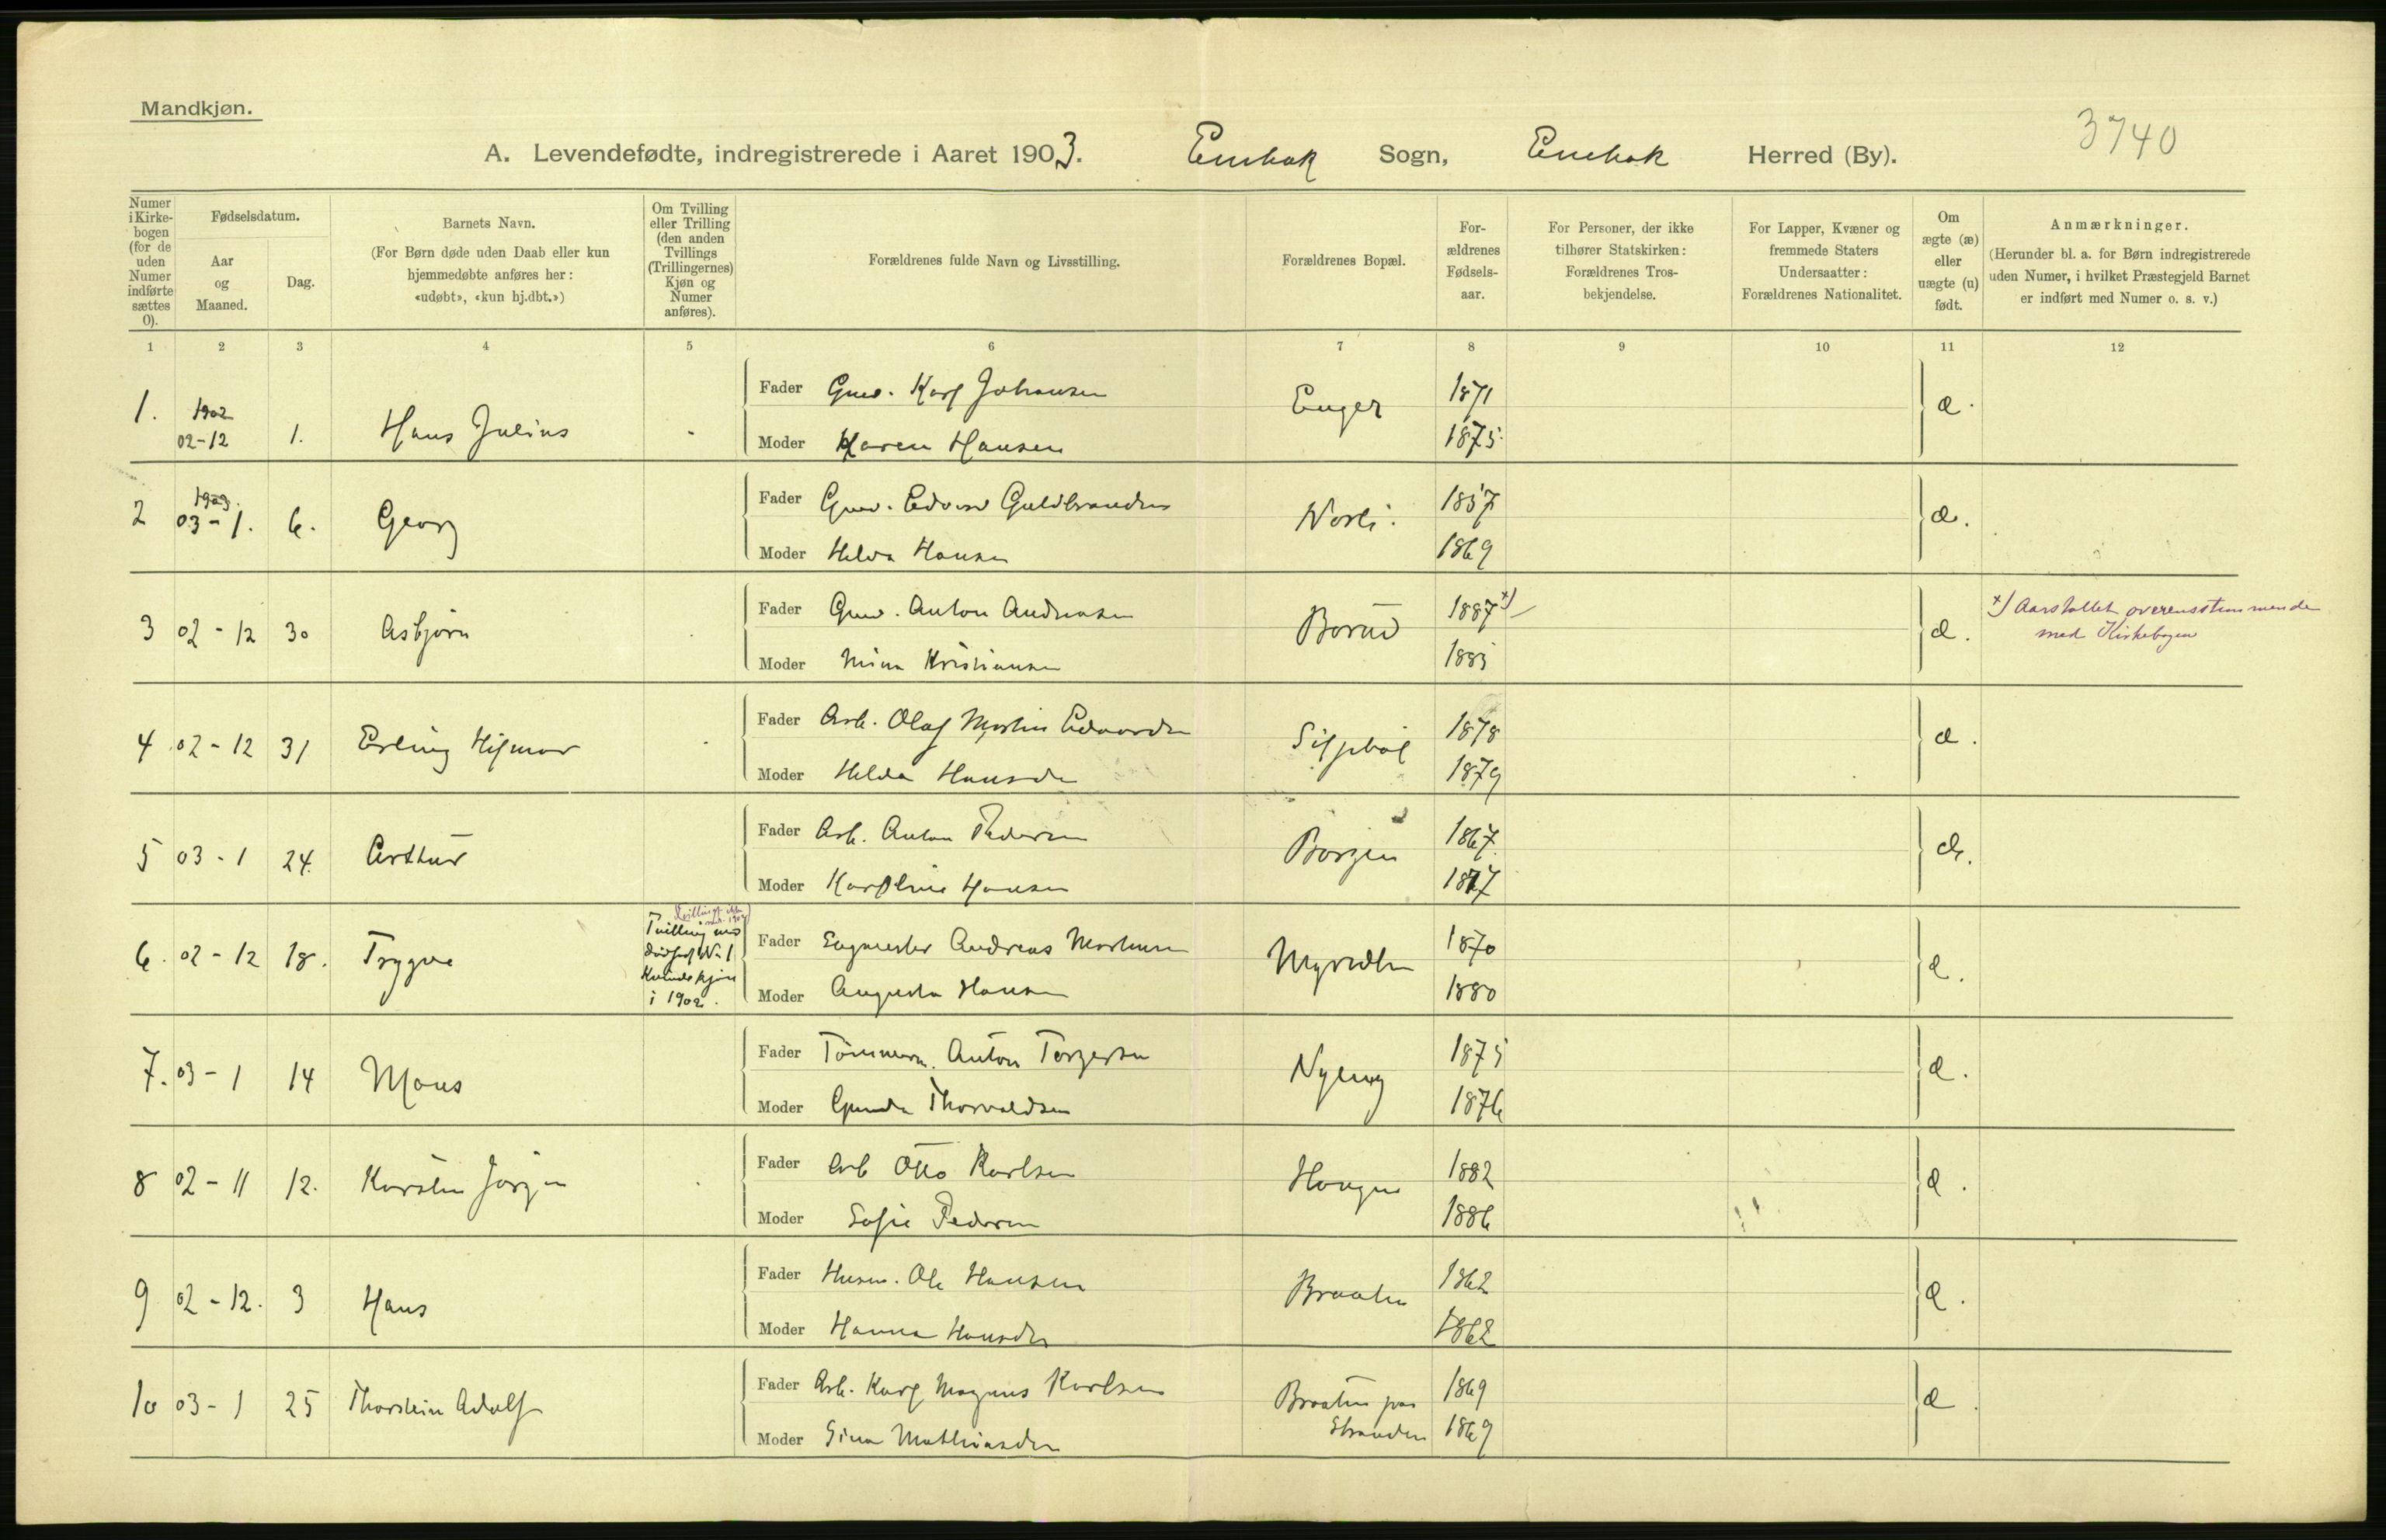 Mandkjøn.
3740
A. Levendefødte, indregistrerede i Aaret 1903. Enebak Sogn, Enebak Herred (By).
Numer i Kirkebogen (for de uden Numer indførte sættes 0).
Fødselsdatum.
Aar og Maaned.
Dag.
Barnets Navn.
(For Børn døde uden Daab eller kun hjemmedøbte anføres her: «udøbt», «kun hj.dbt.»)
Om Tvilling eller Trilling (den anden Tvillings (Trillingernes) Kjøn og Numer anføres).
Forældrenes fulde Navn og Livsstilling.
Forældrenes Bopæl.
Forældrenes Fødselsaar.
For Personer, der ikke tilhører Statskirken: Forældrenes Trosbekjendelse.
For Lapper, Kvæner og fremmede Staters Undersaatter: Forældrenes Nationalitet.
Om ægte (æ) eller uægte (u) født.
Anmærkninger.
(Herunder bl. a. for Børn indregistrerede uden Numer, i hvilket Præstegjeld Barnet er indført med Numer o. s. v.)
1 2 3 4 5 6 7 8 9 10 11 12
1. 1902 02-12 1. Hans Julius Fader Karl Johansen Enger 1871 æ.
Moder Karen Hansen 1875.
2 1903. 03-1. 6. Georg Fader Edvard Guldbrandsen Norli. 1857 æ.
Moder Helda Hansen 1869
3 02-12 30 Asbjørn Fader Anton Andreasen Borud 1887 x) æ. x) Aarstallet overensstemmende
med Kirkebogen
Moder Mina Kristiansen 1885
4 02-12 31 Erling Hilmar Fader Arb. Olaf Martin Edvardsen 1878 æ.
Moder Helda Hansdr 1879
5 03-1 24. Arthur Fader Arb. Anton Pedersen Borgen 1867. æ.
Moder Karoline Hansen 1877
6. 02-12 18. Trygve Tvilling med dødfød N. 1 Kvindekjøn i 1902. Fader Andreas Martinsen 1870 æ.
Moder Augusta Hansen 1880
7. 03-1 14 Mons Fader Tømmerm. Anton Torgersen Nyeng 1875 æ.
Moder Gunda Thorvaldsen 1876
8 02-11 12. Karsten Jørgen Fader Arb Otto Karlsen Haugen 1882 æ.
Moder Sofie Pedersen 1886
9 02-12. 3 Hans Fader Husm. Ole Hansen Braaten 1862 æ.
Moder Hanna Hansdr 1862
10 03-1 25 Thorstein Adolf Fader Arb. Karl Magnus Karlsen Braaten paa 1869 æ.
Moder Gina Mathiasdr Stranden 1869